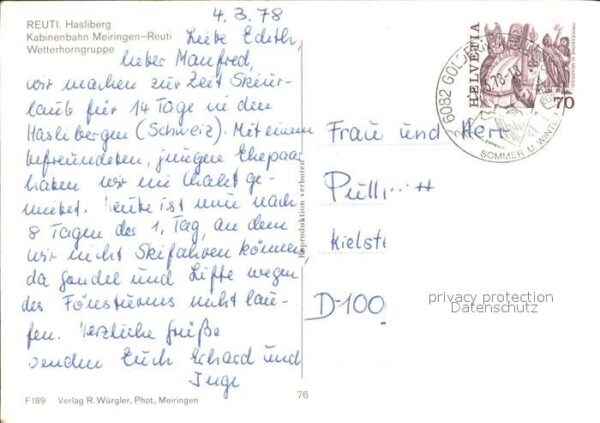 REUTI. Hasliberg
Kabinenbahn Meiringen–Reuti
Wetterhorngruppe
4.3.78
Liebe Edith,
lieber Manfred,
wir machen zur Zeit Skiur-
laub für 14 Tage in den
Haslibergen (Schweiz). Mit einem
befreundeten, jungen Ehepaar
haben wir ein Chalet ge-
mietet. Heute ist nun nach
8 Tagen der 1. Tag, an dem
wir nicht Skifahren können,
da Gondel und Lifte wegen
des Föhnsturms nicht lau-
fen. Herzliche Grüße
senden Euch Erhard und
Inge
F189 Verlag R. Würgler, Phot., Meiringen
76
Reproduktion verboten
HELVETIA
70
6082 GOLDERN
SOMMER U. WINTER
Frau und Herr
Kielste
D-100
privacy protection
Datenschutz